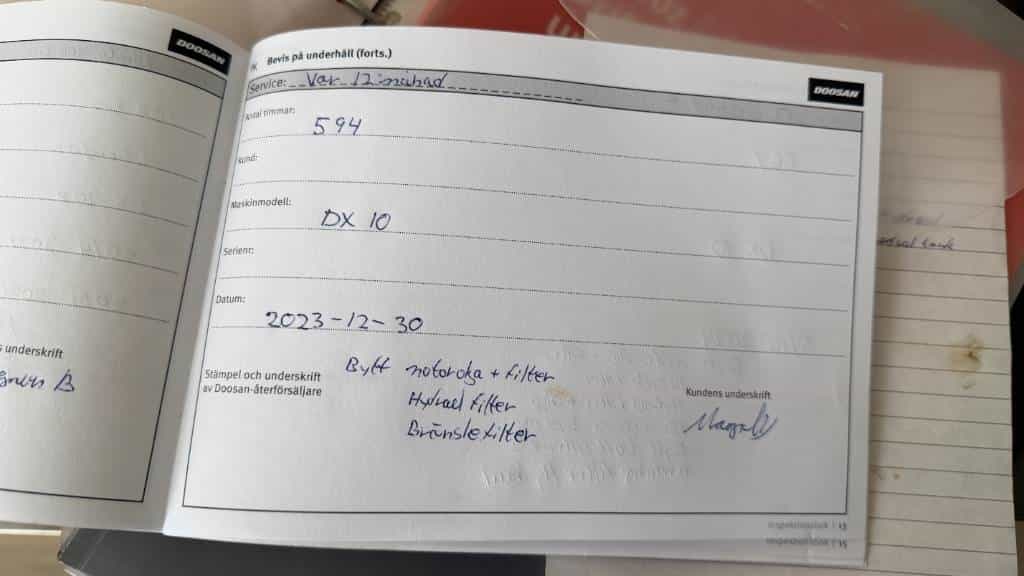 DOOSAN
Bevis på underhåll (forts.)
DOOSAN
Service: Var 12:månad
Antal timmar:
594
Kund:
Maskinmodell:
DX 10
Serienr:
Datum:
2023-12-30
Stämpel och underskrift
av Doosan-återförsäljare
Bytt motorolja + filter
Hydraul filter
Bränslefilter
Kundens underskrift
underskrift